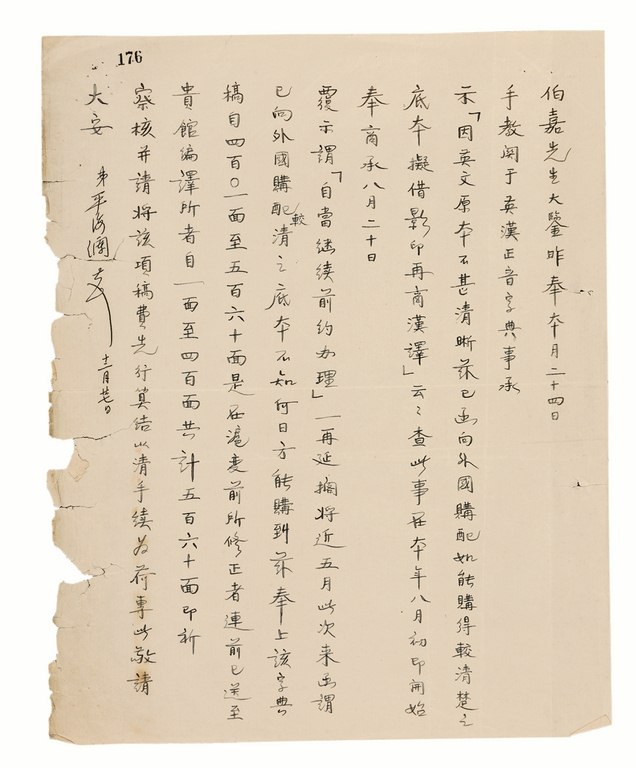 176
伯嘉先生大鑒昨奉本月二十四日
手教關于英漢正音字典事承
示「因英文原本不甚清晰茲已函向外國購配如能購得較清楚之
底本擬借影印再商漢譯」云云查此事在本年八月初即開始
奉商承八月二十日
覆示謂「自當繼續前約办理」一再延擱將近五月此次来函謂
已向外國購配較清之底本不知何日方能購到茲奉上該字典
稿自四百〇一面至五百六十面是在滬變前所修正者連前已送至
貴館編譯所者自一面至四百面共計五百六十面即祈
察核并請將該項稿費先行算结以清手續为荷專此敬請
大安
弟平海瀾
十二月廿七日